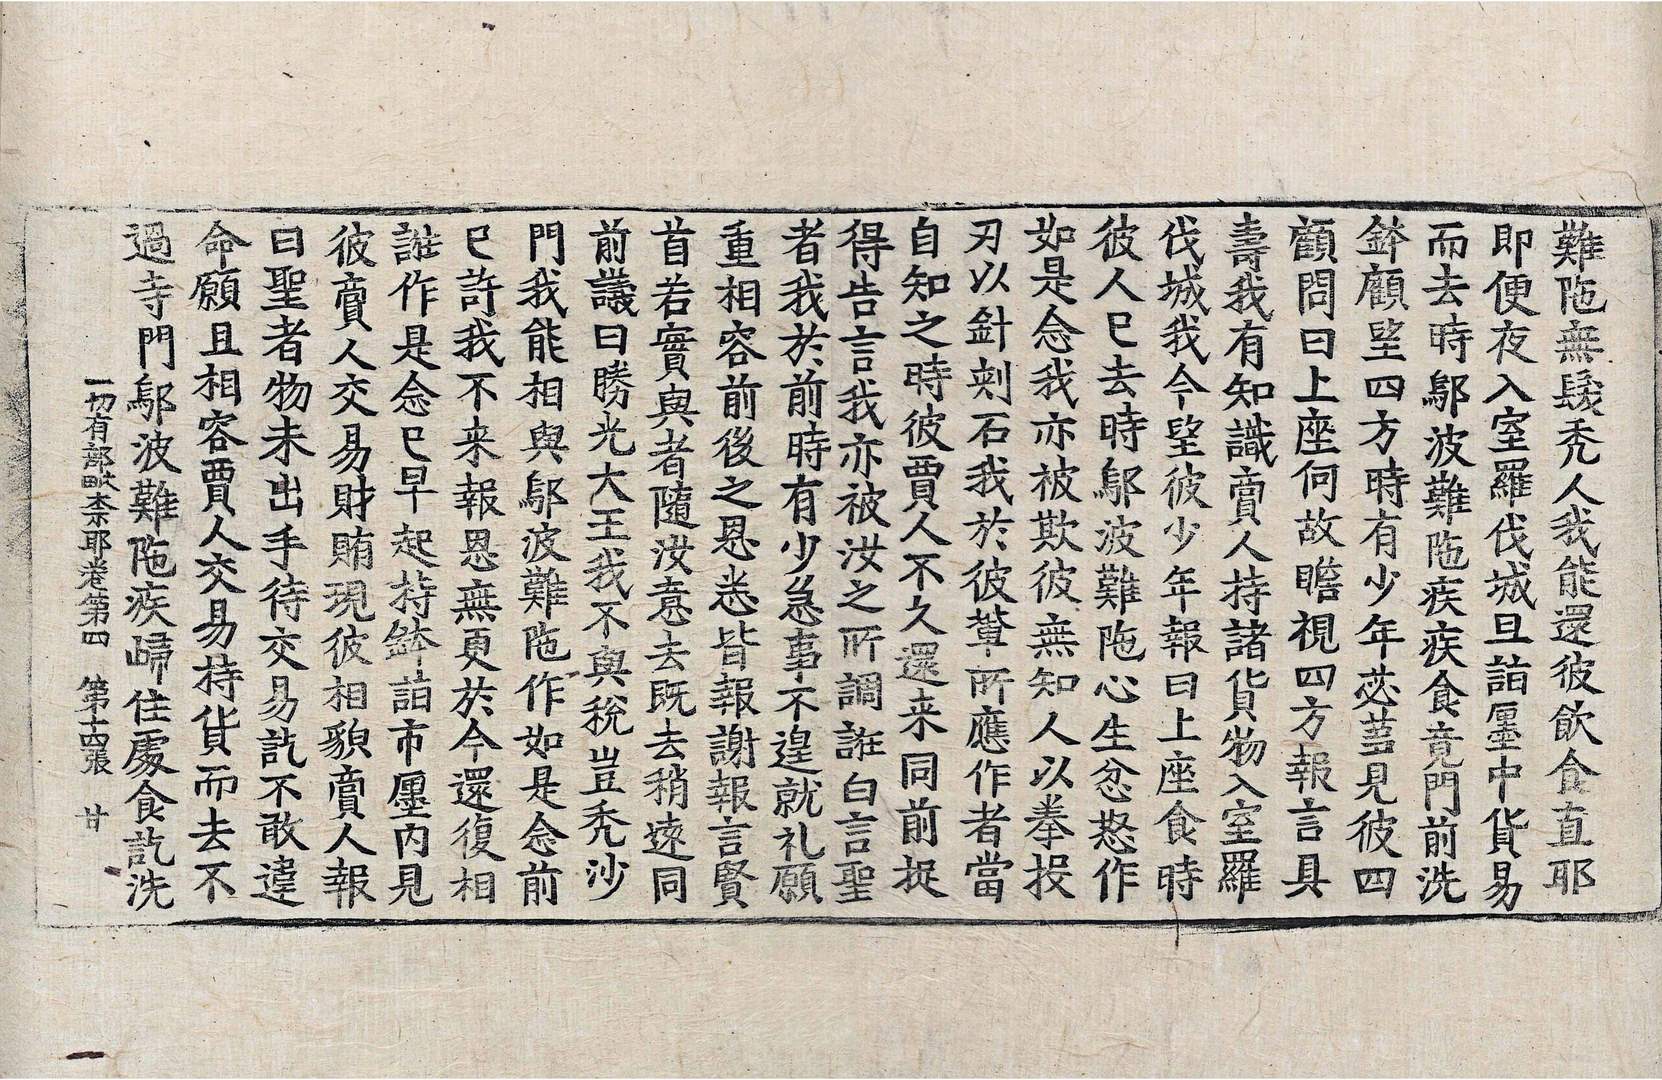 難陁無髮禿人我能還彼飲食直耶
即便夜入室羅伐城旦詣㕓中貨易
而去時鄔波難陁疾疾食竟門前洗
鉢顧望四方時有少年苾芻見彼四
顧問曰上座何故瞻視四方報言具
壽我有知識賣人持諸貨物入室羅
伐城我今望彼少年報曰上座食時
彼人已去時鄔波難陁心生忿怒作
如是念我亦被欺彼無知人以拳投
刃以針剌石我於彼輩所應作者當
自知之時彼賈人不久還来同前捉
得告言我亦被汝之所調誑白言聖
者我於前時有少急事不遑就礼願
重相容前後之恩悉皆報謝報言賢
首若實與者隨汝意去既去稍遠同
前議曰勝光大王我不與稅豈禿沙
門我能相與鄔波難陁作如是念前
已許我不来報恩無更於今還復相
誑作是念已早起持鉢詣市㕓內見
彼賣人交易財賄現彼相貌賣人報
曰聖者物未出手待交易訖不敢違
命願且相容賈人交易持貨而去不
過寺門鄔波難陁疾歸住處食訖洗
一切有部毗奈耶卷第四 第十四張 甘